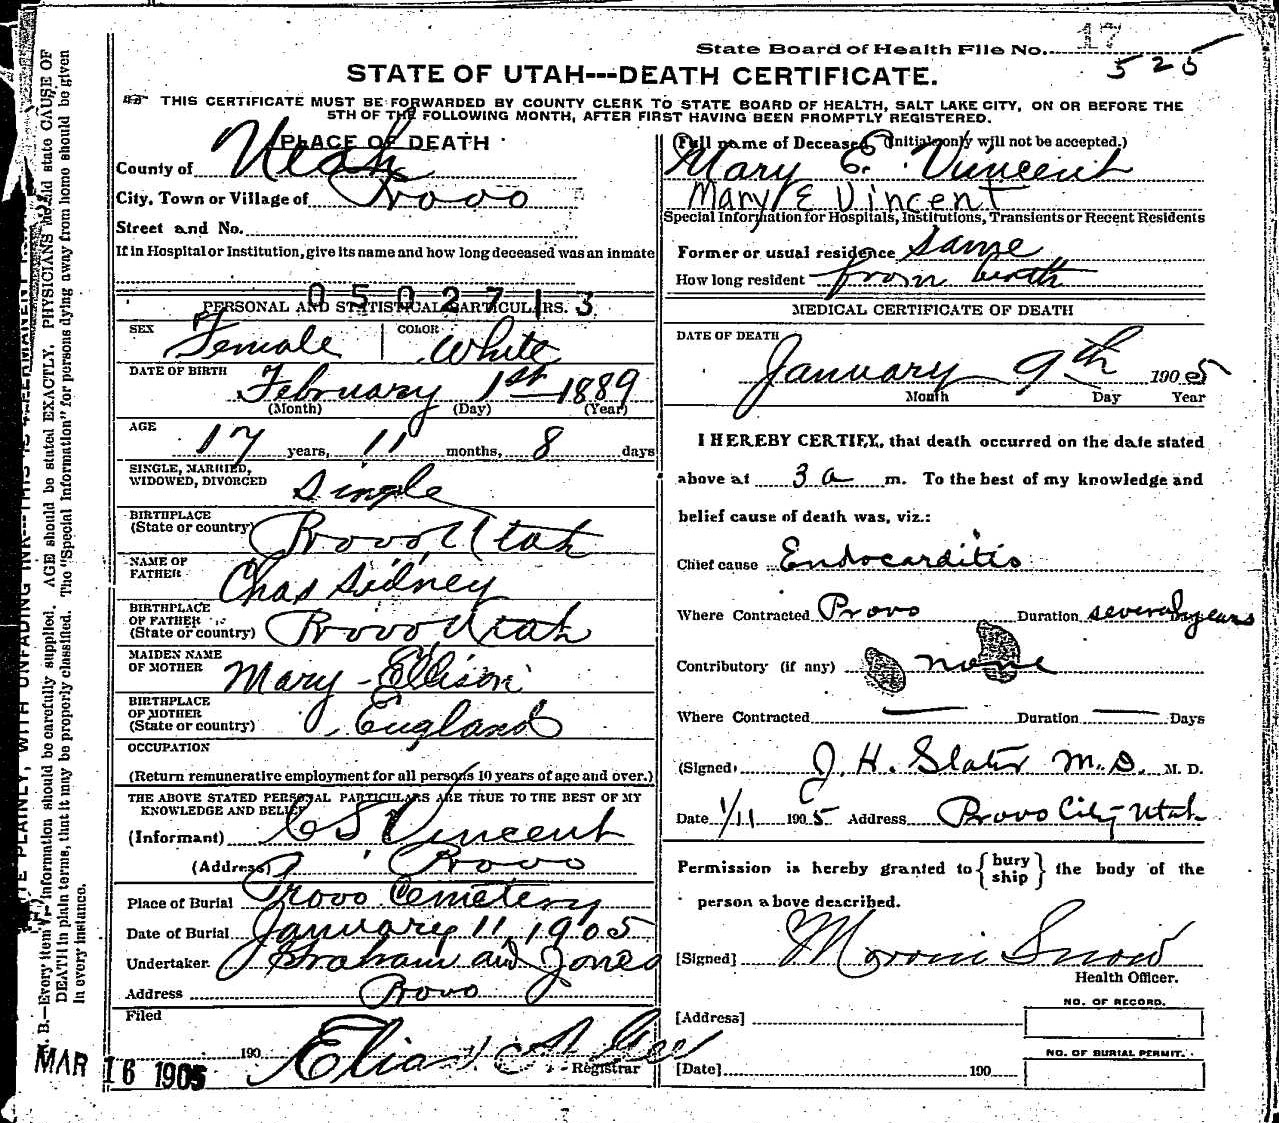 State Board of Health File No. 17
525
STATE OF UTAH---DEATH CERTIFICATE.
THIS CERTIFICATE MUST BE FORWARDED BY COUNTY CLERK TO STATE BOARD OF HEALTH, SALT LAKE CITY, ON OR BEFORE THE
5TH OF THE FOLLOWING MONTH, AFTER FIRST HAVING BEEN PROMPTLY REGISTERED.
PLACE OF DEATH
County of Utah
City, Town or Village of Provo
Street and No.
If in Hospital or Institution, give its name and how long deceased was an inmate
0502713
PERSONAL AND STATISTICAL PARTICULARS.
SEX Female COLOR White
DATE OF BIRTH February 1st 1889
(Month) (Day) (Year)
AGE 17 years, 11 months, 8 days
SINGLE, MARRIED,
WIDOWED, DIVORCED Single
BIRTHPLACE
(State or country) Provo Utah
NAME OF
FATHER Chas Sidney
BIRTHPLACE
OF FATHER
(State or country) Provo Utah
MAIDEN NAME
OF MOTHER Mary Ellison
BIRTHPLACE
OF MOTHER
(State or country) England
OCCUPATION
(Return remunerative employment for all persons 10 years of age and over.)
THE ABOVE STATED PERSONAL PARTICULARS ARE TRUE TO THE BEST OF MY
KNOWLEDGE AND BELIEF
(Informant) C S Vincent
(Address) Provo
Place of Burial Provo Cemetery
Date of Burial January 11, 1905
Undertaker Graham and Jones
Address Provo
Filed
190 Elias A. Gee
Registrar
MAR 16 1905
(Full name of Deceased. Initials only will not be accepted.)
Mary E. Vincent
Mary E Vincent
Special Information for Hospitals, Institutions, Transients or Recent Residents
Former or usual residence Same
How long resident from birth
MEDICAL CERTIFICATE OF DEATH
DATE OF DEATH
January 9th 1905
Month Day Year
I HEREBY CERTIFY, that death occurred on the date stated
above at 3 a m. To the best of my knowledge and
belief cause of death was, viz.:
Chief cause Endocarditis
Where Contracted Provo Duration several years
Contributory (if any) none
Where Contracted — Duration — Days
(Signed) J. H. Slater M.D. M. D.
Date 1/11 1905 Address Provo City Utah
Permission is hereby granted to { bury ship } the body of the
person above described.
[Signed] Moroni Snow
Health Officer.
[Address]
[Date] 190
NO. OF RECORD.
NO. OF BURIAL PERMIT.
N. B.—Every item of information should be carefully supplied. AGE should be stated EXACTLY. PHYSICIANS should state CAUSE OF
DEATH in plain terms, that it may be properly classified. The "Special Information" for persons dying away from home should be given
in every instance.